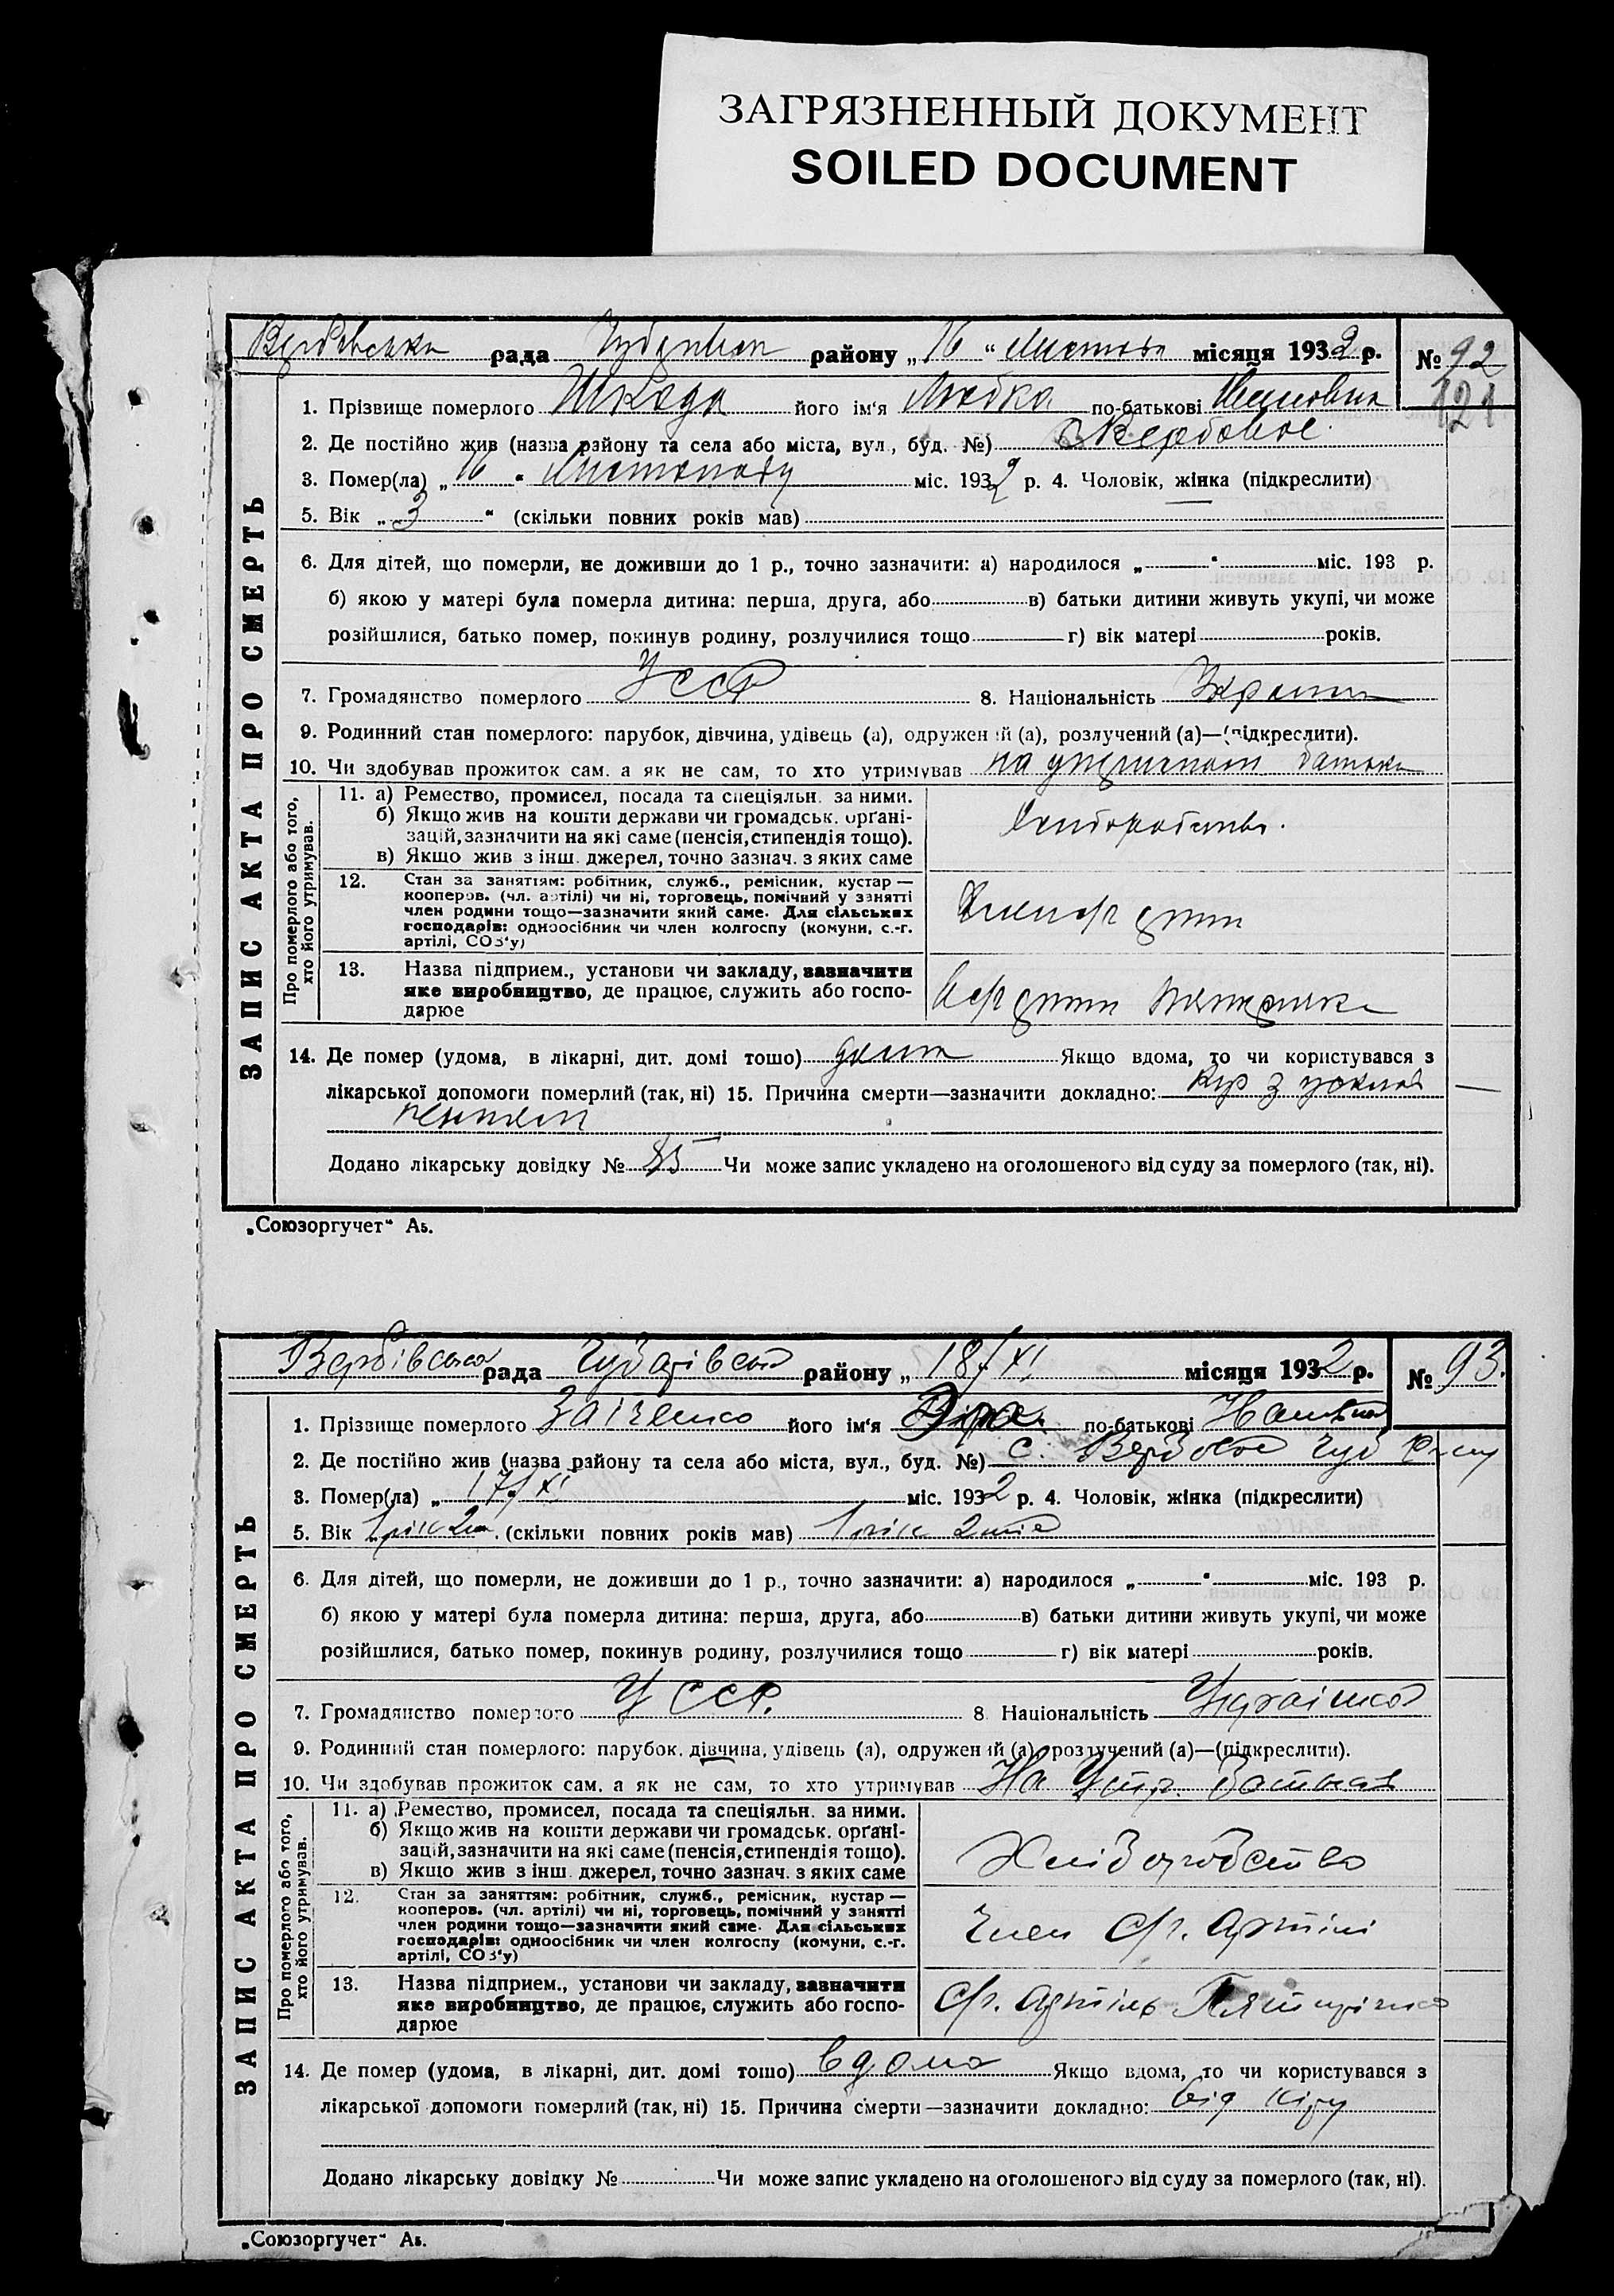 ЗАГРЯЗНЕННЫЙ ДОКУМЕНТ
SOILED DOCUMENT
рада району „ 16 “ місяця 1932 р. № 92
121
1. Прізвище померлого Шкода його ім'я Любка по-батькові
2. Де постійно жив (назва району та села або міста, вул., буд. №) с Вербовое
3. Помер(ла) „ 16 “ Листопаду міс. 1932 р. 4. Чоловік, жінка (підкреслити)
5. Вік „ 3 “ (скільки повних років мав)
6. Для дітей, що померли, не доживши до 1 р., точно зазначити: а) народилося „ “ міс. 193 р.
б) якою у матері була померла дитина: перша, друга, або в) батьки дитини живуть укупі, чи може
розійшлися, батько помер, покинув родину, розлучилися тощо г) вік матері років.
7. Громадянство померлого УССР 8. Національність
9. Родинний стан померлого: парубок, дівчина, удівець (а), одружений (а), розлучений (а)—(підкреслити).
10. Чи здобував прожиток сам, а як не сам, то хто утримував на батька
ЗАПИС АКТА ПРО СМЕРТЬ
Про померлого або того, хто його утримував.
11. а) Ремество, промисел, посада та спеціяльн. за ними.
б) Якщо жив на кошти держави чи громадськ. орґані-
зацій, зазначити на які саме (пенсія, стипендія тощо).
в) Якщо жив з інш. джерел, точно зазнач. з яких саме
12. Стан за заняттям: робітник, служб., ремісник, кустар —
кооперов. (чл. артілі) чи ні, торговець, помічний у занятті
член родини тощо—зазначити який саме. Для сільських
господарів: одноосібник чи член колгоспу (комуни, с.-г.
артілі, СОЗ'у)
13. Назва підприєм., установи чи закладу, зазначити
яке виробництво, де працює, служить або госпо-
дарює
14. Де помер (удома, в лікарні, дит. домі тощо) дома Якщо вдома, то чи користувався з
лікарської допомоги померлий (так, ні) 15. Причина смерти—зазначити докладно: Кір з
Додано лікарську довідку № 85 Чи може запис укладено на оголошеного від суду за померлого (так, ні).
„Союзоргучет“ А₅.
Вербівська рада Чубарівсько району „ 18/XI місяця 1932 р. № 93.
1. Прізвище померлого Заіченко його ім'я Віра по-батькові
2. Де постійно жив (назва району та села або міста, вул., буд. №) с. Вербовое Чуб р-ну
3. Помер(ла) „ 17/XI міс. 1932 р. 4. Чоловік, жінка (підкреслити)
5. Вік „ 1 рік 2 м. (скільки повних років мав) 1 рік 2 міс
6. Для дітей, що померли, не доживши до 1 р., точно зазначити: а) народилося „ “ міс. 193 р.
б) якою у матері була померла дитина: перша, друга, або в) батьки дитини живуть укупі, чи може
розійшлися, батько помер, покинув родину, розлучилися тощо г) вік матері років.
7. Громадянство померлого УССР. 8. Національність Украінка
9. Родинний стан померлого: парубок, дівчина, удівець (а), одружений (а), розлучений (а)—(підкреслити).
10. Чи здобував прожиток сам, а як не сам, то хто утримував На Утр. Батьков
ЗАПИС АКТА ПРО СМЕРТЬ
Про померлого або того, хто його утримував.
11. а) Ремество, промисел, посада та спеціяльн. за ними.
б) Якщо жив на кошти держави чи громадськ. орґані-
зацій, зазначити на які саме (пенсія, стипендія тощо).
в) Якщо жив з інш. джерел, точно зазнач. з яких саме
Хліборобство
12. Стан за заняттям: робітник, служб., ремісник, кустар —
кооперов. (чл. артілі) чи ні, торговець, помічний у занятті
член родини тощо—зазначити який саме. Для сільських
господарів: одноосібник чи член колгоспу (комуни, с.-г.
артілі, СОЗ'у)
Член С/г. артілі
13. Назва підприєм., установи чи закладу, зазначити
яке виробництво, де працює, служить або госпо-
дарює
С/г. артіль Пятирічка
14. Де помер (удома, в лікарні, дит. домі тощо) вдома Якщо вдома, то чи користувався з
лікарської допомоги померлий (так, ні) 15. Причина смерти—зазначити докладно: від кіру
Додано лікарську довідку № Чи може запис укладено на оголошеного від суду за померлого (так, ні).
„Союзоргучет“ А₅.